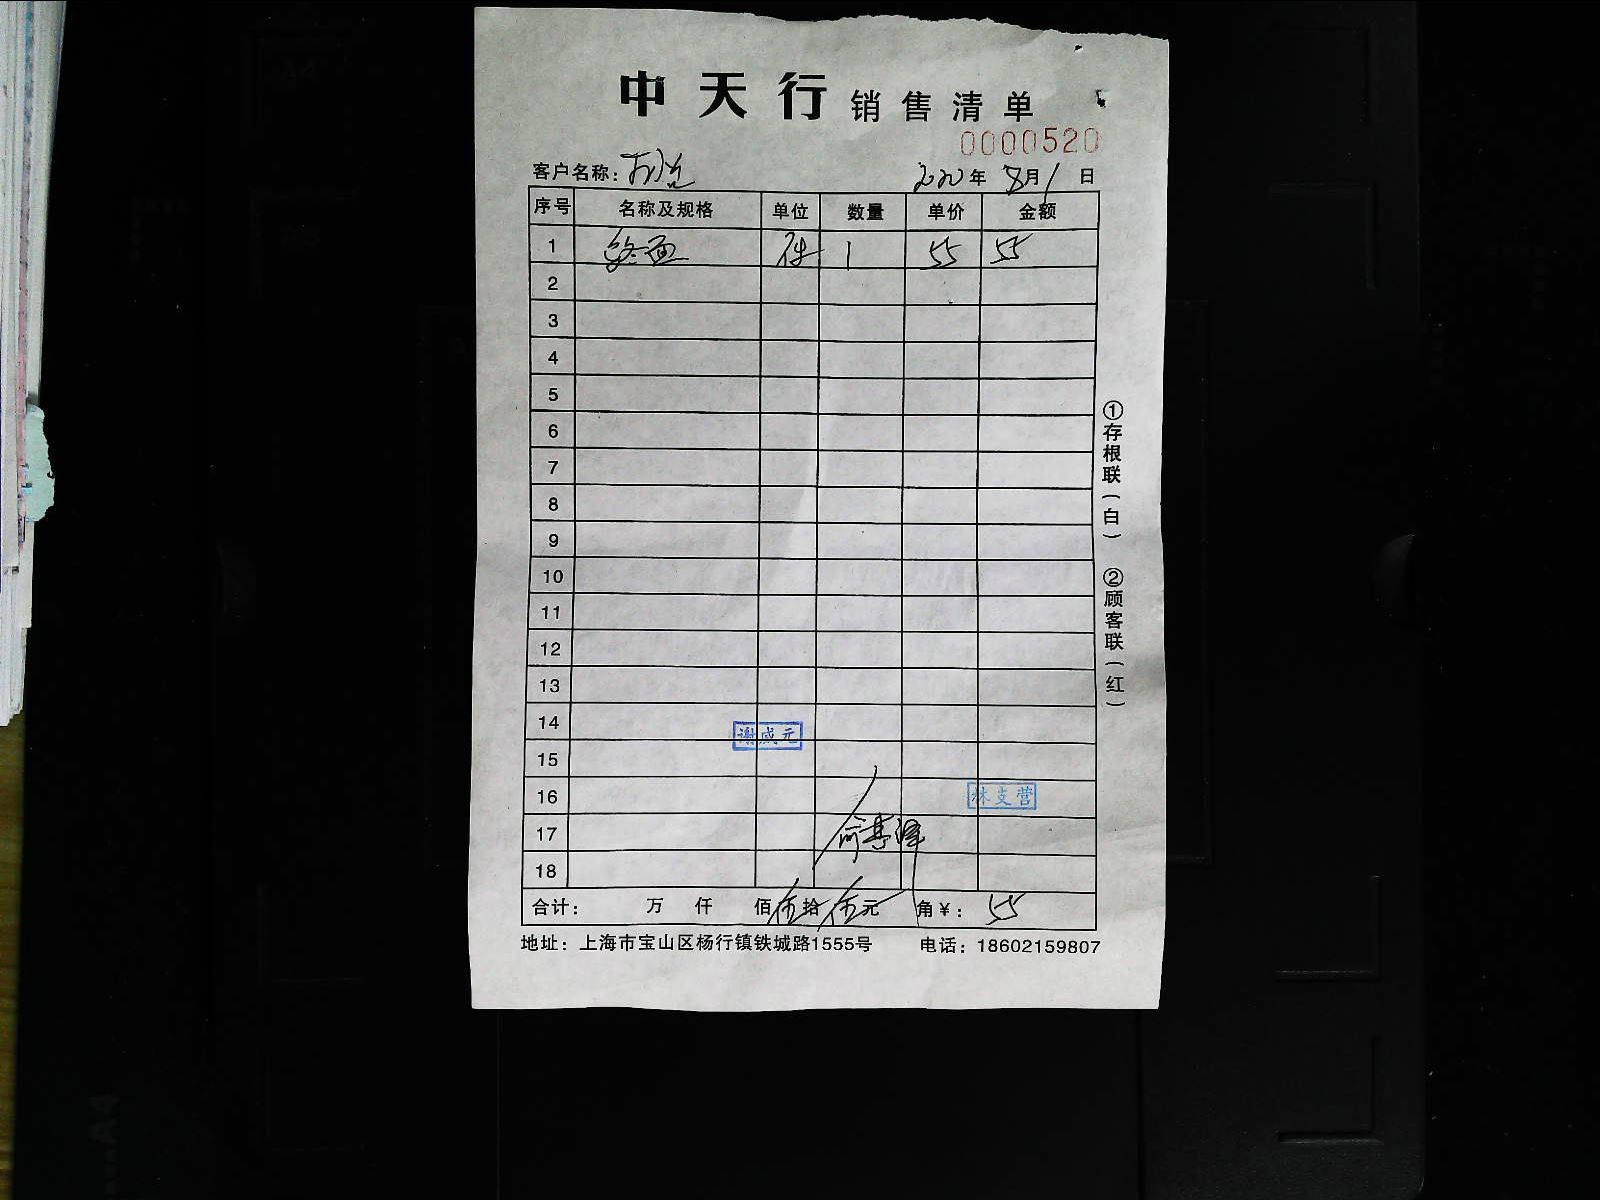 中天行 销售清单
0000520
客户名称: 2020年 8月1日
序号 名称及规格 单位 数量 单价 金额
1 件 1 55 55
2
3
4
5
6
7
8
9
10
11
12
13
14
谢咸元
15
16 林支营
17
18
合计: 万 仟 佰伍拾伍元 角¥: 55
地址: 上海市宝山区杨行镇铁城路1555号 电话: 18602159807
①存根联(白) ②顾客联(红)